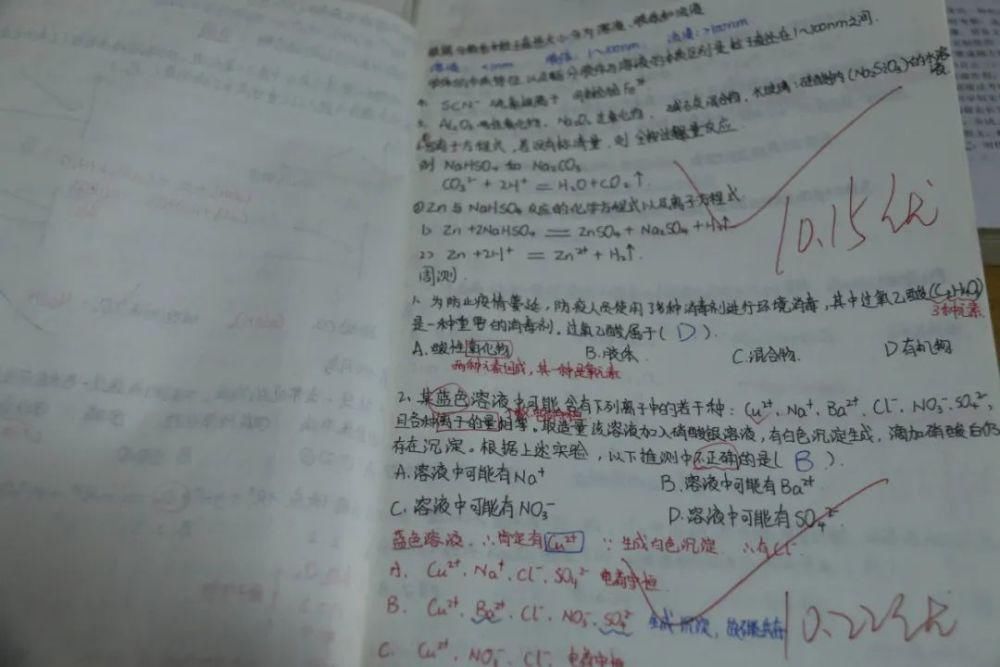 根据分散系中粒子直径大小分为溶液、胶体和浊液
溶液：<1nm 胶体：1~100nm 浊液：>100nm
胶体的本质特征以及区分胶体与溶液的本质区别是粒子直径在1~100nm之间.
4. SCN⁻ 硫氰根离子 可检验Fe³⁺
5. Al₂O₃两性氧化物、Na₂O₂过氧化物、碱石灰混合物、水玻璃：硅酸钠(Na₂SiO₃)的水溶液
离子方程式，若没有标清量，则全按过量反应.
例 NaHSO₄ 和 Na₂CO₃
CO₃²⁻ + 2H⁺ = H₂O + CO₂↑.
②Zn与NaHSO₄反应的化学方程式以及离子方程式
1> Zn + 2NaHSO₄ = ZnSO₄ + Na₂SO₄ + H₂↑
2> Zn + 2H⁺ = Zn²⁺ + H₂↑
10.15 纪
周测.
1、为防止疫情蔓延，防疫人员使用了多种消毒剂进行环境消毒，其中过氧乙酸(C₂H₄O₃)
3种元素
是一种重要的消毒剂. 过氧乙酸属于( D ).
A.酸性氧化物 B.液体. C.混合物. D有机物
两种元素组成，其一种是氧元素
2、某蓝色溶液中可能含有下列离子中的若干种：Cu²⁺、Na⁺、Ba²⁺、Cl⁻、NO₃⁻、SO₄²⁻，
且各种离子的量相等。取适量该溶液加入硝酸银溶液，有白色沉淀生成，滴加硝酸白仍
存在沉淀。根据上述实验，以下推测中不正确的是( B ).
A.溶液中可能有Na⁺ B.溶液中可能有Ba²⁺
C.溶液中可能有NO₃⁻ D.溶液中可能有SO₄²⁻
蓝色溶液 ∴肯定有Cu²⁺ ∵生成白色沉淀 ∴有Cl⁻
A. Cu²⁺、Na⁺、Cl⁻、SO₄²⁻ 电荷守恒
B. Cu²⁺、Ba²⁺、Cl⁻、NO₃⁻、SO₄²⁻ 生成沉淀，故不能共存
10.22 纪
C. Cu²⁺、NO₃⁻、Cl⁻ 电荷守恒